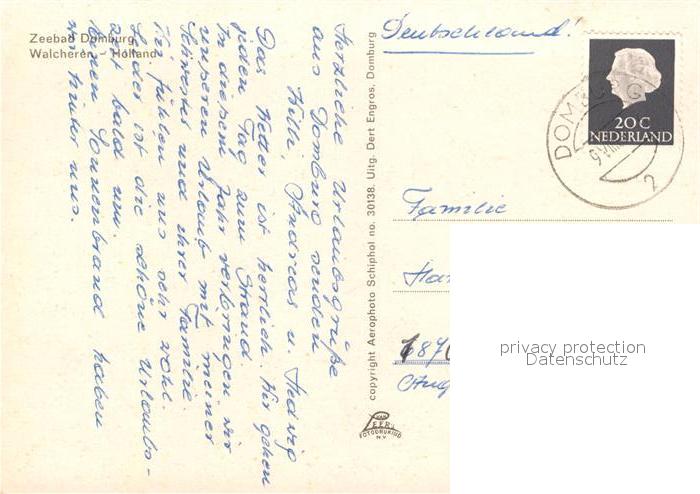 Zeebad Domburg
Walcheren - Holland
Herzliche Urlaubsgrüße
aus Domburg senden
Willi, Andreas u. Hedwig
Das Wetter ist herrlich. Wir gehen
jeden Tag zum Strand.
In diesem Jahr verbringen wir
unseren Urlaub mit meiner
Schwester und ihrer Familie.
Wir fühlen uns sehr wohl.
Leider ist die schöne Urlaubs-
zeit bald um.
Sonnenbrand haben
wir hinter uns.
copyright Aerophoto Schiphol no. 30138. Uitg. Dert Engros, Domburg
VAN LEER's
FOTODRUKIND
N.V.
Deutschland!
20 C
NEDERLAND
DOMBURG
2
Familie
privacy protection
Datenschutz